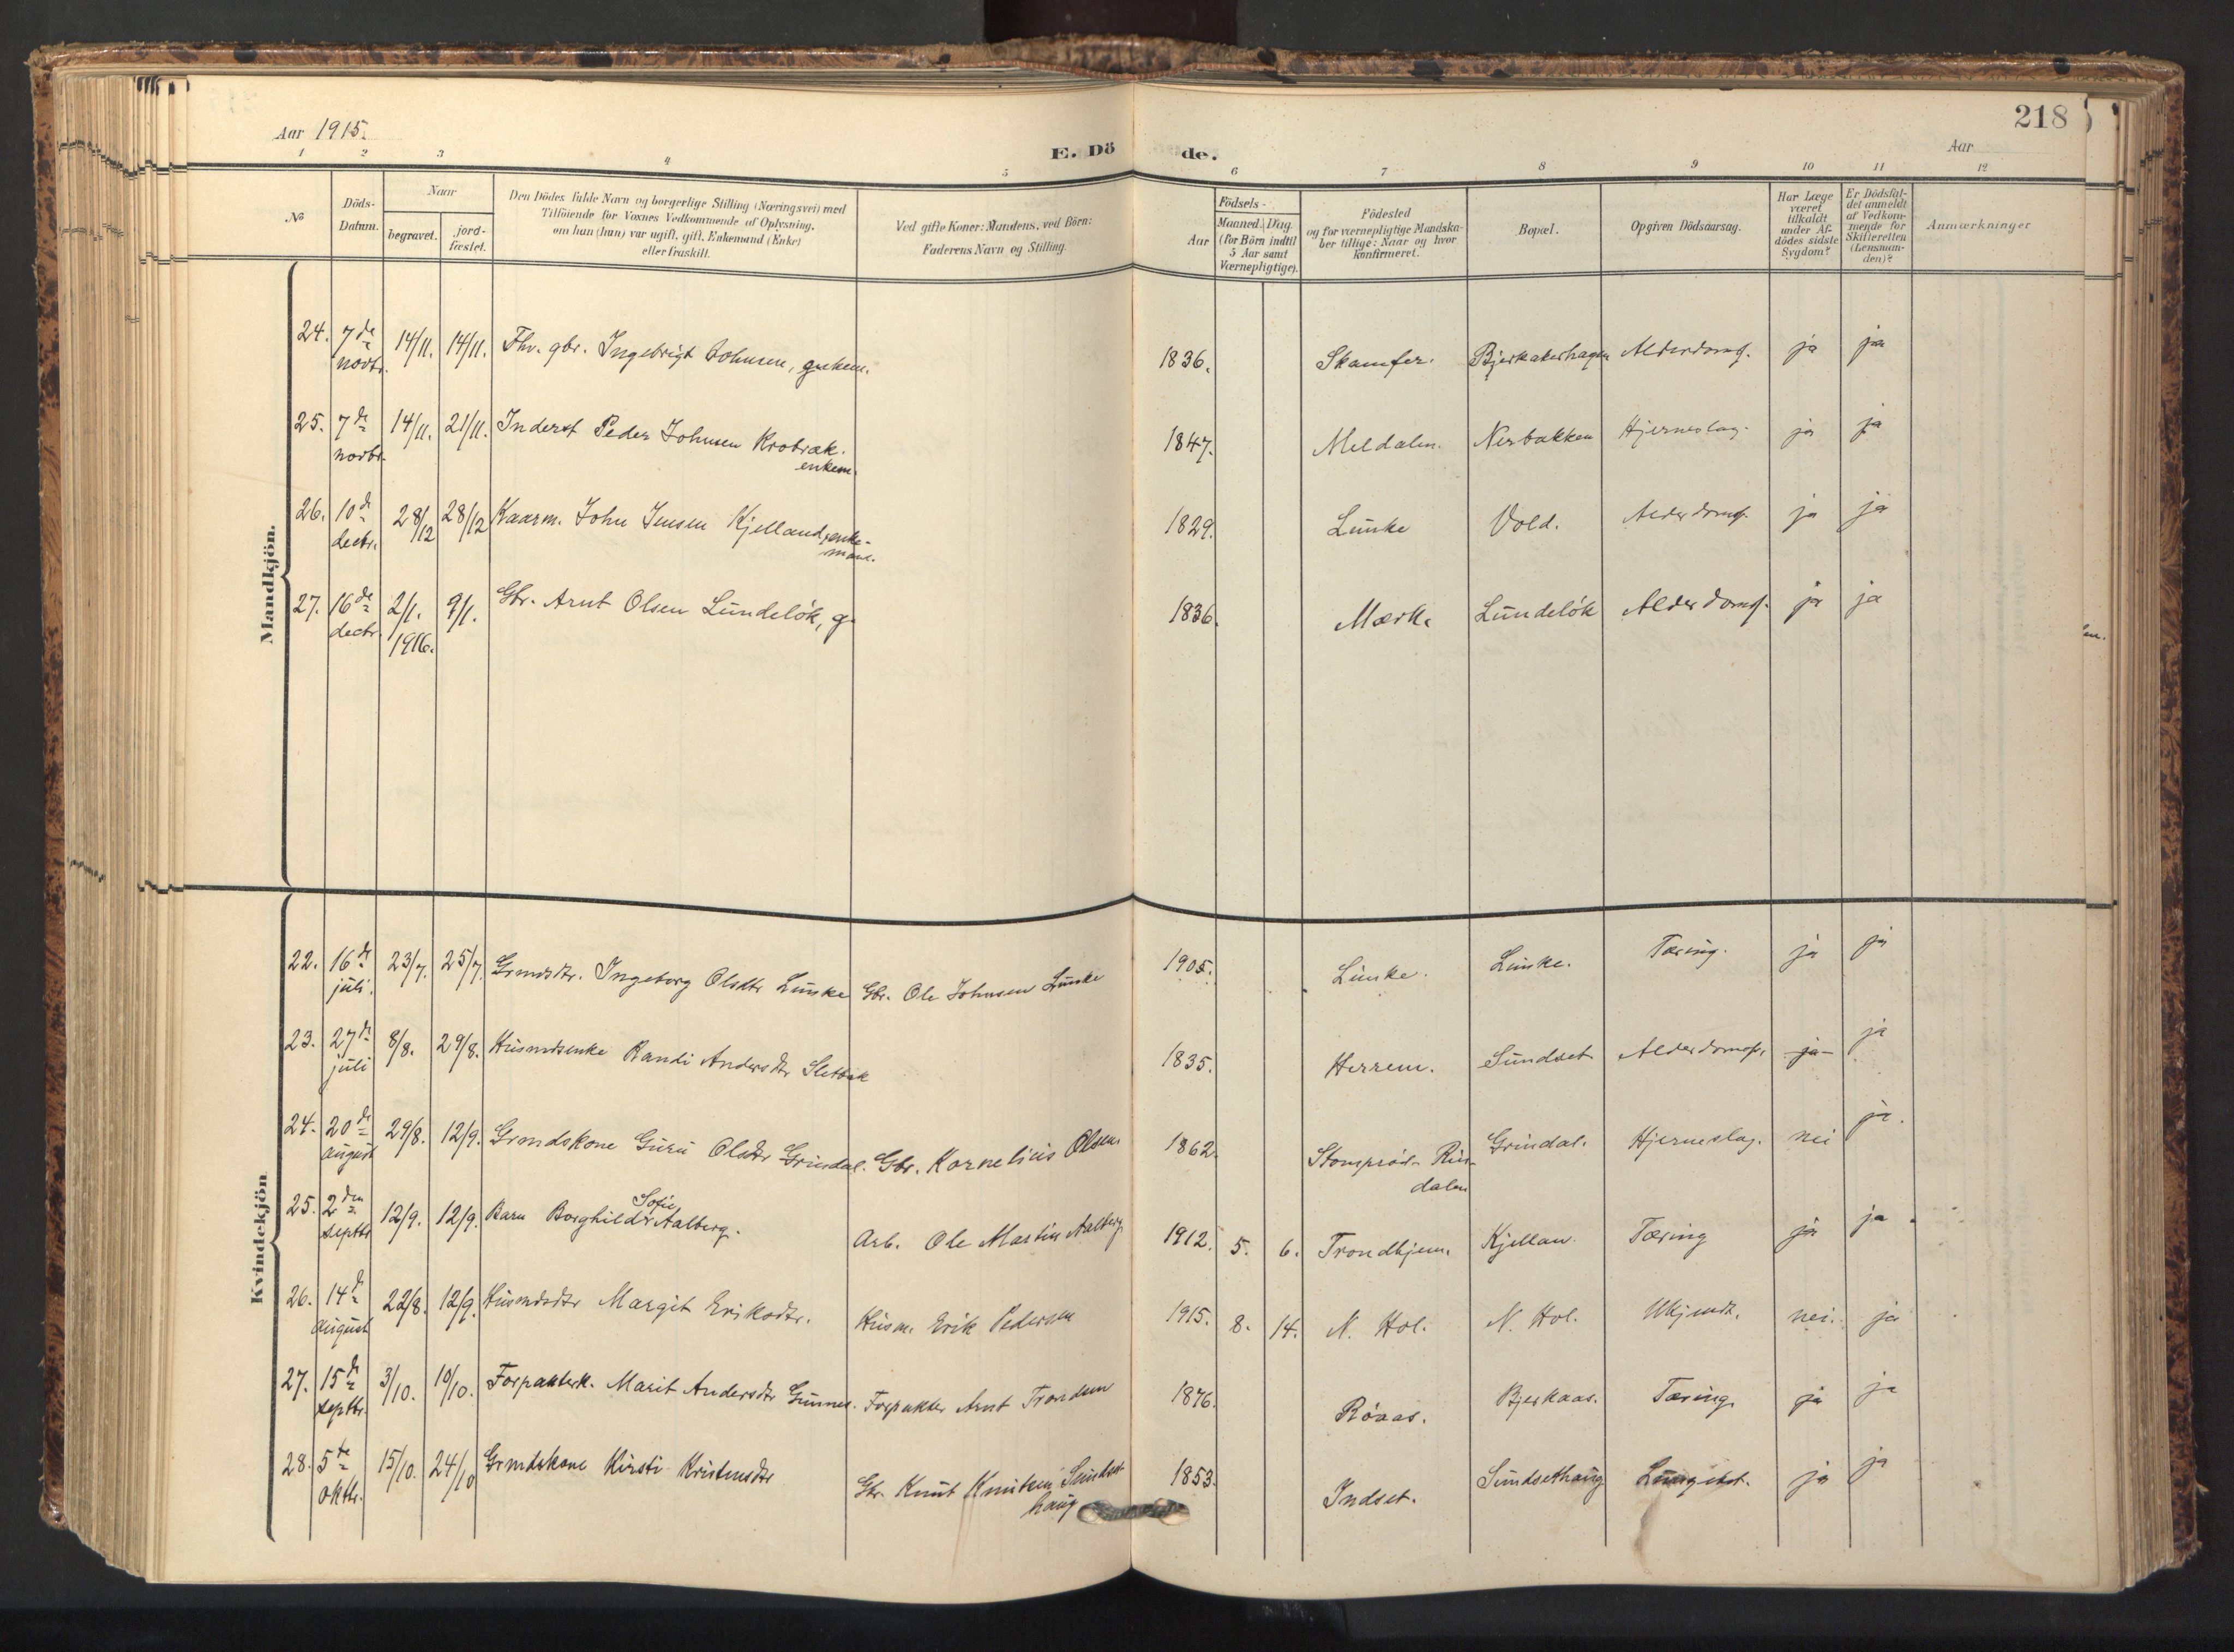 218
Aar 1915.
E. Döde.
Aar
1 2 3 4 5 6 7 8 9 10 11 12
№
Döds-Datum.
Naar
begravet.
jordfæstet.
Den Dödes fulde Navn og borgerlige Stilling (Næringsvei) med
Tilföiende for Voxnes Vedkommende af Oplysning,
om han (hun) var ugift, gift, Enkemand (Enke)
eller fraskilt.
Ved gifte Koner: Mandens, ved Börn:
Faderens Navn og Stilling.
Födsels-
Aar
Maaned. Dag.
(for Börn indtil
5 Aar samt
Værnepligtige).
Födested
og for værnepligtige Mandska-
ber tillige: Naar og hvor
konfirmeret.
Bopæl.
Opgiven Dödsaarsag.
Har Læge
været
tilkaldt
under Af-
dödes sidste
Sygdom?
Er Dödsfal-
det anmeldt
af Vedkom-
mende for
Skifteretten
(Lensman-
den)?
Anmærkninger
Mandkjön.
24. 7de novbr. 14/11. 14/11. Fhv. gbr. Ingebrigt Johnsen, 1836. Skamfer. Bjerkakerhagen Alderdomsf. ja ja
25. 7de novbr. 14/11. 21/11. Inderst Peder Johnsen Krobræk. enkem. 1847. Meldalen. Nerbakken Hjerneslag. ja ja
26. 10de decbr. 28/12 28/12 Kaarm. John Jensen Kjelland, enke-mand. 1829. Lunke Vold. Alderdomsf. ja ja
27. 16de decbr. 2/1. 1916. 9/1. Gbr. Arnt Olsen Lundeløk, g. 1836. Mærk. Lundeløk Alderdomsf. ja ja
Kvindekjön
22. 16de juli. 23/7. 25/7. Grmdsdtr. Ingeborg Olsdtr Lunke Gbr. Ole Johnsen Lunke 1905. Lunke. Lunke. Tæring. ja ja
23. 27de juli 8/8. 29/8. Husmdsenke Randi Andersdtr Sletbak 1835. Herrem. Sundset Alderdomsf. ja ja
24. 20de august 29/8. 12/9. Grmdskone Guru Olsdtr Grindal. Gbr. Kornelius Olsen. 1862. Stomprød- Rin-dalen Grindal. Hjerneslag. nei ja.
25. 2den septbr 12/9. 12/9. Barn Borghild Sofie Aalberg. Arb. Ole Martin Aalberg 1912. 5. 6. Trondhjem. Kjellan. Tæring ja ja
26. 14de august 22/8. 12/9. Husmdsdtr Margit Eriksdtr. Husm. Erik Pedersen 1915. 8. 14. N. Hol. N. Hol. Ukjendt. nei. ja
27. 15de septbr. 3/10. 10/10. Forpakterk. Marit Andersdtr Gunnes. Forpakter Arnt Trondsen 1876. Røaas. Bjerkaas. Tæring. ja ja
28. 5te oktbr. 15/10. 24/10 Grmdskone Kirsti Kristensdtr Gbr. Knut Knutsen Sundset-haug 1853. Indset. Sundsethaug ja ja